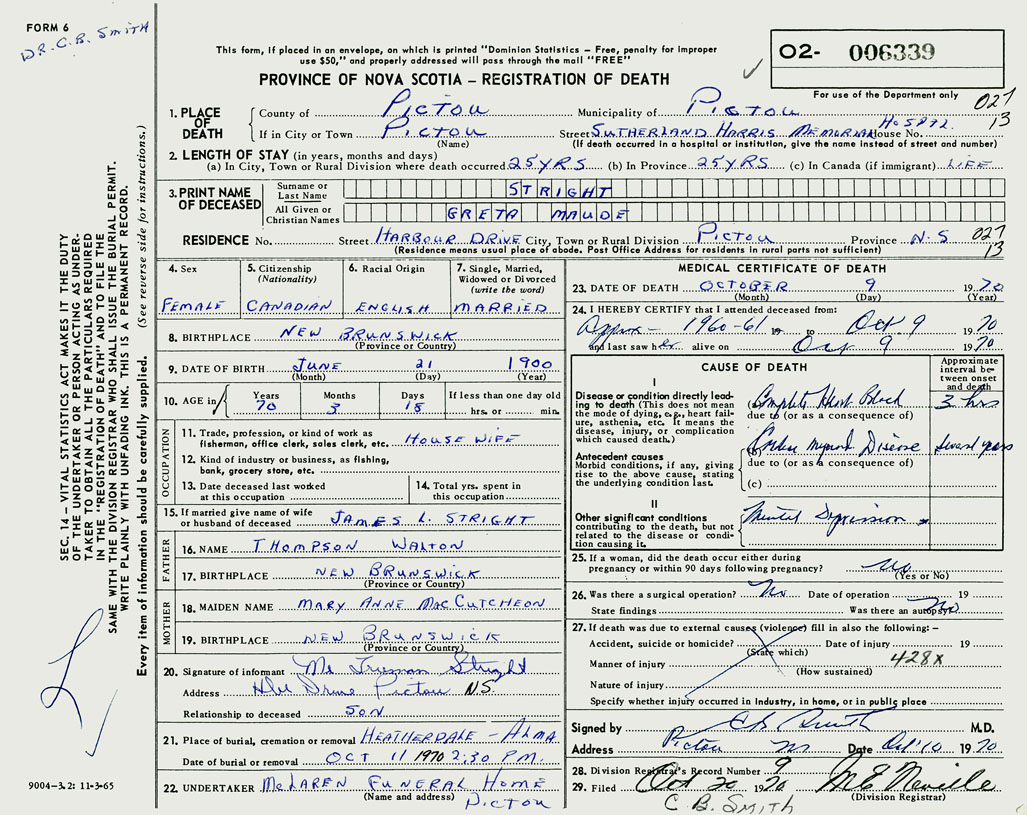 FORM 6
DR. C. B. SMITH
This form, if placed in an envelope, on which is printed "Dominion Statistics – Free, penalty for improper
use $50," and properly addressed will pass through the mail "FREE"
PROVINCE OF NOVA SCOTIA – REGISTRATION OF DEATH
02- 006339
For use of the Department only
027
13
1. PLACE OF DEATH
County of PICTOU Municipality of PICTOU
If in City or Town PICTOU Street SUTHERLAND HARRIS MEMORIAL HOSPITAL House No.
(Name) (If death occurred in a hospital or institution, give the name instead of street and number)
2. LENGTH OF STAY (in years, months and days)
(a) In City, Town or Rural Division where death occurred 25 YRS (b) In Province 25 YRS (c) In Canada (if immigrant) LIFE
3. PRINT NAME OF DECEASED
Surname or Last Name STRIGHT
All Given or Christian Names GRETA MAUDE
RESIDENCE No. Street HARBOUR DRIVE City, Town or Rural Division PICTOU Province N.S 027
13
(Residence means usual place of abode. Post Office Address for residents in rural parts not sufficient)
4. Sex
FEMALE
5. Citizenship
(Nationality)
CANADIAN
6. Racial Origin
ENGLISH
7. Single, Married,
Widowed or Divorced
(write the word)
MARRIED
8. BIRTHPLACE NEW BRUNSWICK
(Province or Country)
9. DATE OF BIRTH JUNE 21 1900
(Month) (Day) (Year)
10. AGE in
Years Months Days If less than one day old
70 3 18 hrs. or min.
OCCUPATION
11. Trade, profession, or kind of work as
fisherman, office clerk, sales clerk, etc. HOUSE WIFE
12. Kind of industry or business, as fishing,
bank, grocery store, etc.
13. Date deceased last worked
at this occupation
14. Total yrs. spent in
this occupation
15. If married give name of wife
or husband of deceased JAMES L. STRIGHT
FATHER
16. NAME THOMPSON WALTON
17. BIRTHPLACE NEW BRUNSWICK
(Province or Country)
MOTHER
18. MAIDEN NAME MARY ANNE MACCUTCHEON
19. BIRTHPLACE NEW BRUNSWICK
(Province or Country)
20. Signature of informant Mr Truman Stright
Address Hbr Drive Pictou N.S.
Relationship to deceased SON
21. Place of burial, cremation or removal HEATHERDALE – ALMA
Date of burial or removal OCT 11 1970 2:30 P.M.
22. UNDERTAKER MCLAREN FUNERAL HOME
(Name and address) PICTOU
MEDICAL CERTIFICATE OF DEATH
23. DATE OF DEATH OCTOBER 9 1970
(Month) (Day) (Year)
24. I HEREBY CERTIFY that I attended deceased from:
Approx – 1960-61 to Oct 9 1970
and last saw her alive on Oct 9 1970
CAUSE OF DEATH
Approximate
interval be-
tween onset
and death
I
Disease or condition directly lead-
ing to death (This does not mean
the mode of dying, e.g., heart fail-
ure, asthenia, etc. It means the
disease, injury, or complication
which caused death.)
Complete Heart Block 3 hrs
due to (or as a consequence of)
Antecedent causes
Morbid conditions, if any, giving
rise to the above cause, stating
the underlying condition last.
Disease years
due to (or as a consequence of)
(c)
II
Other significant conditions
contributing to the death, but not
related to the disease or condi-
tion causing it.
Mental Depression
25. If a woman, did the death occur either during
pregnancy or within 90 days following pregnancy? No
(Yes or No)
26. Was there a surgical operation? No Date of operation 19
State findings Was there an autopsy? No
27. If death was due to external causes (violence) fill in also the following: –
Accident, suicide or homicide? Date of injury 19
(State which)
Manner of injury 428X
(How sustained)
Nature of injury
Specify whether injury occurred in industry, in home, or in public place
Signed by C B Smith M.D.
Address Pictou NS Date Oct 10 1970
28. Division Registrar's Record Number 9
29. Filed Oct 20 1970 M E Neville
(Division Registrar)
C. B. SMITH
SEC. 14 – VITAL STATISTICS ACT MAKES IT THE DUTY
OF THE UNDERTAKER OR PERSON ACTING AS UNDER-
TAKER TO OBTAIN ALL THE PARTICULARS REQUIRED
IN THE "REGISTRATION OF DEATH" AND TO FILE THE
SAME WITH THE DIVISION REGISTRAR WHO SHALL ISSUE THE BURIAL PERMIT.
WRITE PLAINLY WITH UNFADING INK. THIS IS A PERMANENT RECORD.
Every item of information should be carefully supplied. (See reverse side for instructions.)
9004-3.2: 11-3-65